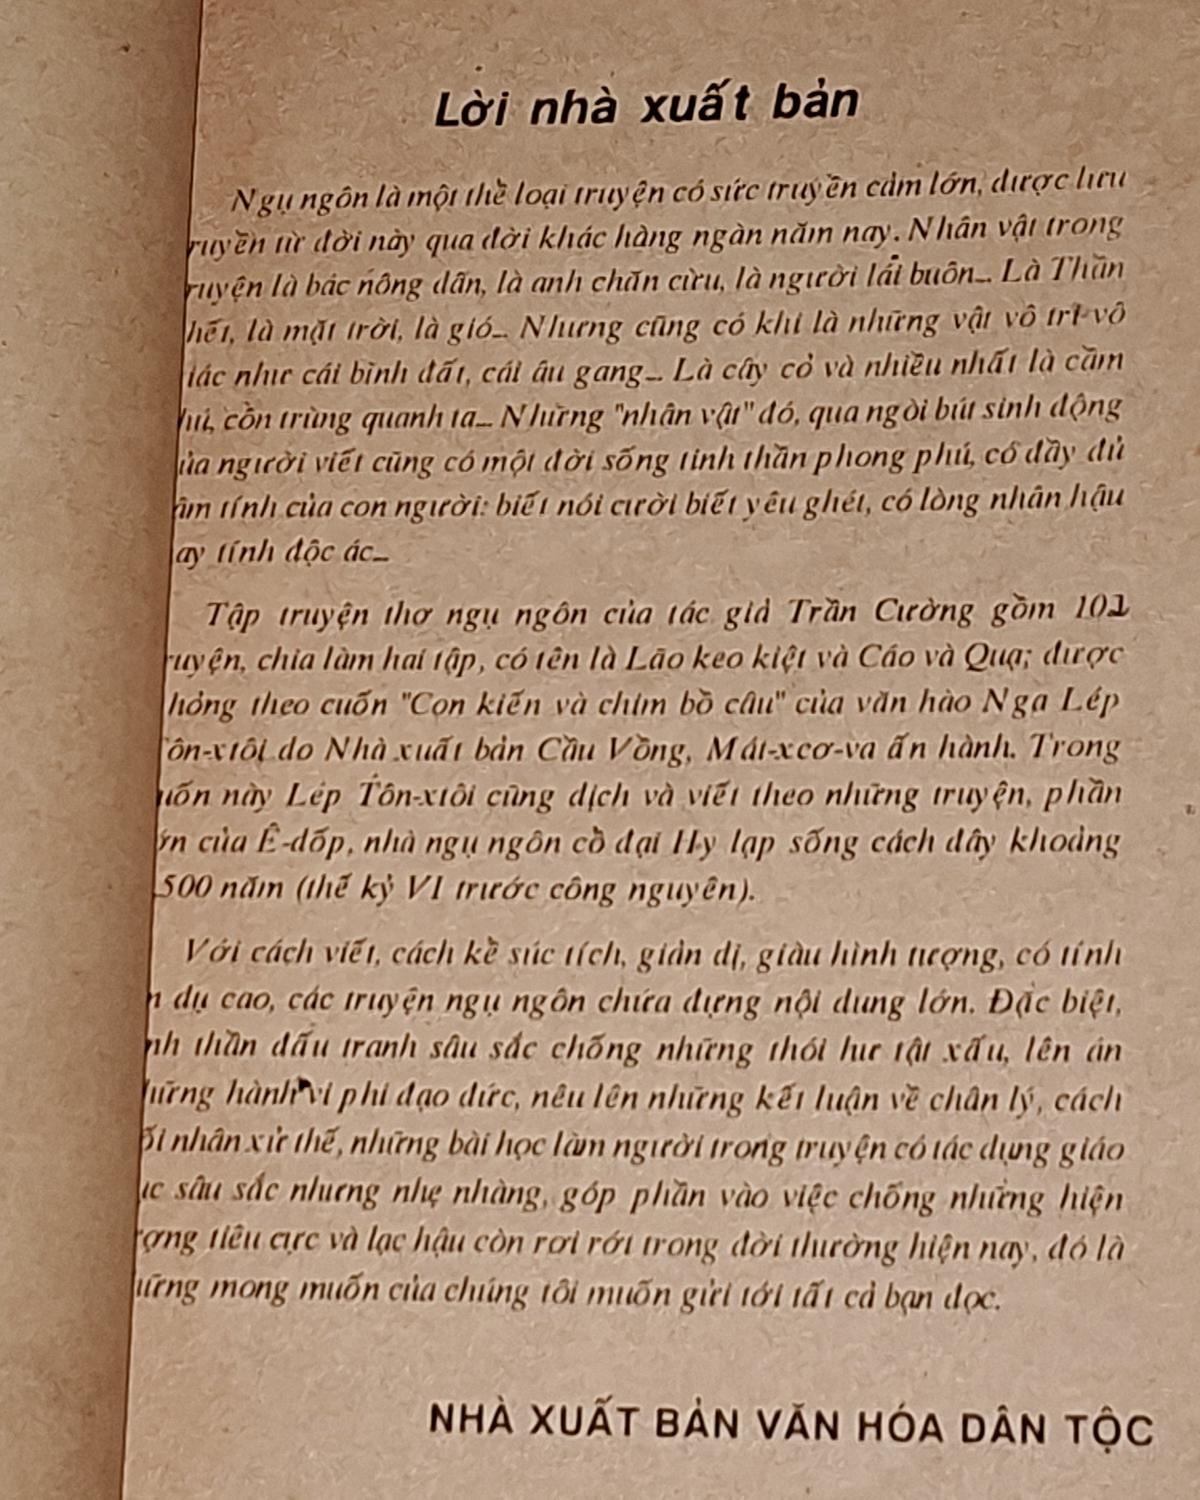 Lời nhà xuất bản
Ngụ ngôn là một thể loại truyện có sức truyền cảm lớn, được lưu
ruyền từ đời này qua đời khác hàng ngàn năm nay. Nhân vật trong
ruyện là bác nông dân, là anh chăn cừu, là người lái buôn... Là Thần
hết, là mặt trời, là gió... Nhưng cũng có khi là những vật vô tri vô
iác như cái bình đất, cái âu gang... Là cây cỏ và nhiều nhất là cầm
hú, côn trùng quanh ta... Những "nhân vật" đó, qua ngòi bút sinh động
ủa người viết cũng có một đời sống tinh thần phong phú, có đầy đủ
âm tính của con người: biết nói cười biết yêu ghét, có lòng nhân hậu
ay tính độc ác...
Tập truyện thơ ngụ ngôn của tác giả Trần Cường gồm
ruyện, chia làm hai tập, có tên là Lão keo kiệt và Cáo và Quạ; được
hỏng theo cuốn "Con kiến và chim bồ câu" của văn hào Nga Lép
ôn-xtôi do Nhà xuất bản Cầu Vồng, Mát-xcơ-va ấn hành. Trong
uốn này Lép Tôn-xtôi cũng dịch và viết theo những truyện, phần
ớn của Ê-dốp, nhà ngụ ngôn cổ đại Hy lạp sống cách đây khoảng
.500 năm (thế kỷ VI trước công nguyên).
Với cách viết, cách kể súc tích, giản dị, giàu hình tượng, có tính
n dụ cao, các truyện ngụ ngôn chứa đựng nội dung lớn. Đặc biệt,
nh thần đấu tranh sâu sắc chống những thói hư tật xấu, lên án
hững hành vi phi đạo đức, nêu lên những kết luận về chân lý, cách
ối nhân xử thế, những bài học làm người trong truyện có tác dụng giáo
ục sâu sắc nhưng nhẹ nhàng, góp phần vào việc chống những hiện
ượng tiêu cực và lạc hậu còn rơi rớt trong đời thường hiện nay, đó là
ững mong muốn của chúng tôi muốn gửi tới tất cả bạn đọc.
NHÀ XUẤT BẢN VĂN HÓA DÂN TỘC